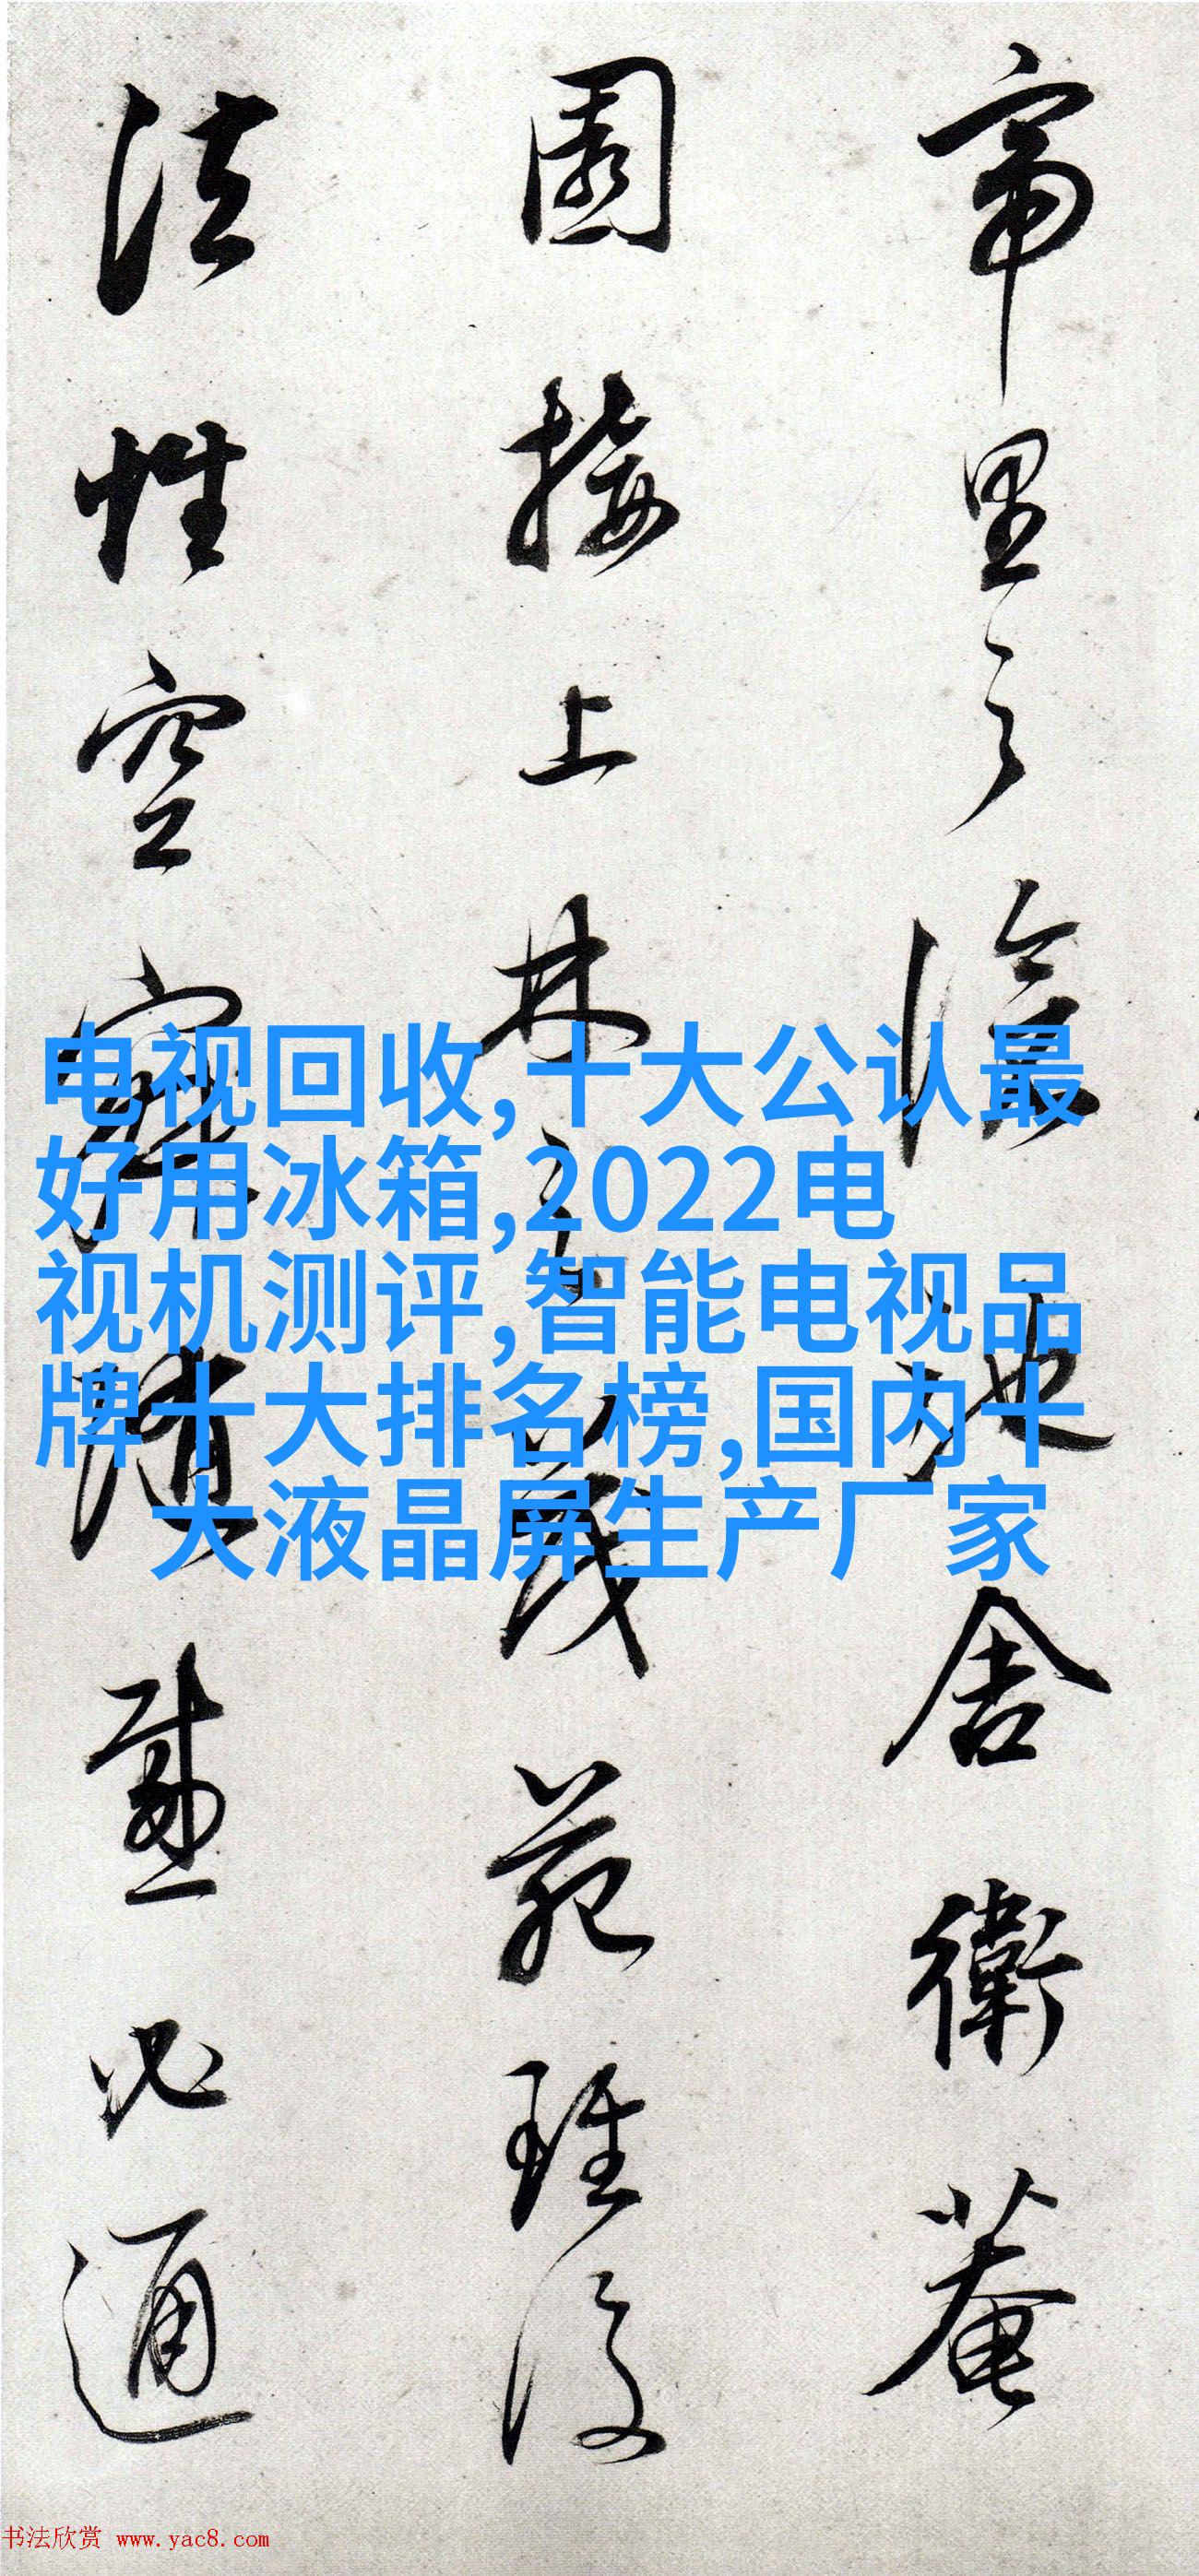 帝里之陰地舍衛菴
園接上林之茂苑雖復
法性空寂隨感必通
电视回收,十大公认最
好用冰箱,2022电
视机测评,智能电视品
牌十大排名榜,国内十
大液晶屏生产厂家
书法欣赏 www.yac8.com